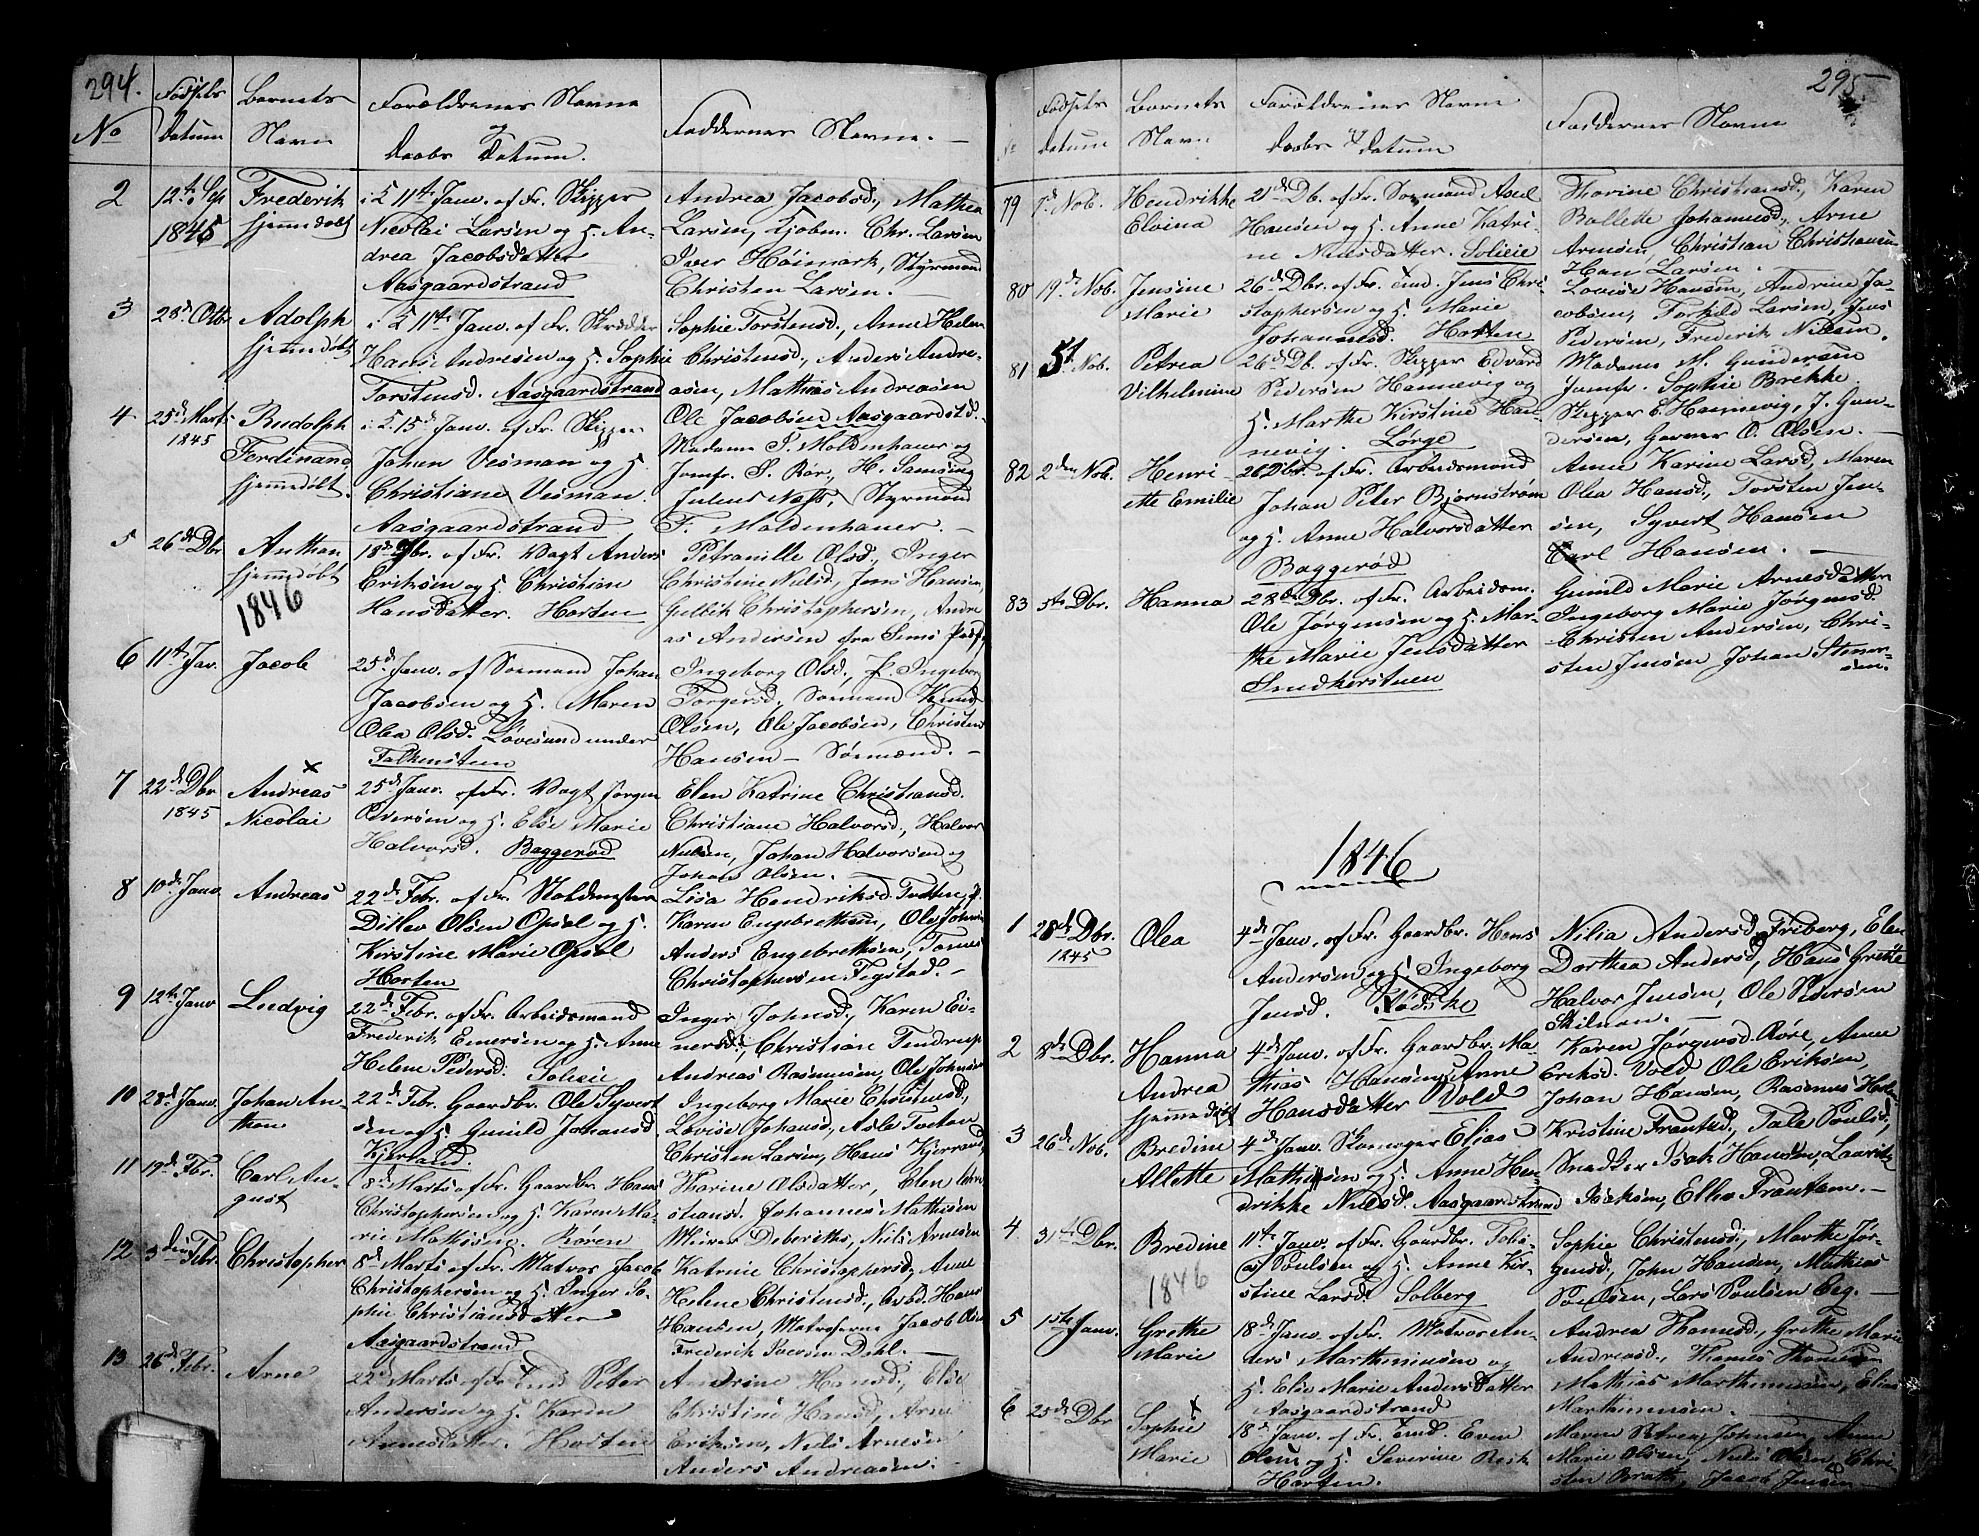 294.
No
Fødsels
Datum
Barnets
Navn
Forældrenes Navne
og
Daabs Datum.
Faddernes Navne.
2
12te Sep
1845
Frederik
hjemmedøbt
i K 11te Janv. af Fr. Skipper
Nicolai Larsen og H. An-
drea Jacobsdatter
Aasgaardstrand
Andrea Jacobsd., Mathea
Larsen, Kjøbm. Chr. Larsen
Iver Høimark, Styrmand
Christen Larsen.
3
28d Otbr
Adolph
hjemmedøbt
i K 11te Janv. af Fr. Skrædder
Hans Andresen og H. Sophie
Torstensd. Aasgaardstrand
Sophie Torstensd., Anne Helene
Christensd., Anders Andre-
asen, Mathias Andreasen
Ole Jacobsen Aasgaardstd.
4
25d Marts
1845
Rudolph
Ferdinand
hjemmedøbt.
i K 15d Janv. af Fr. Skipper
Johan Vesman og H.
Christiane Vesman.
Aasgaardstrand
Madame P. Moldenhauer og
Jomfr. S. Bør, H. Samsing
Julius Næss, Styrmand
F. Moldenhauer.
5
26d Dbr
Anthon
hjemmedøbt
1846
18d Jbr. af Fr. Vagt Anders
Eriksen og H. Christine
Hansdatter. Horten
Petronille Olsd., Inger
Christine Nielsd., Jens Hansen,
Gulbik Christophersen, Andre-
as Andersen fra Sems Præstg.
6
11te Jav.
Jacob
25d Janv. af Sømand Johan
Jacobsen og H. Maren
Olea Olsd. Løvesund under
Falkensteen
Ingeborg Olsd., P. Ingeborg
Torgersd., Sømænd Knud
Olsen, Ole Jacobsen, Christen
Hansen – Sømænd. –
7
22d Dbr
1845
Andreas
Nicolai
25d Janv. af Fr. Vagt Jørgen
Iversen og H. Else Marie
Halvorsd. Baggerød
Elen Katrine Christiansd.
Christiane Halvorsd., Halvor
Nielsen, Johan Halvorsen og
Johan Olsen.
8
10d Janv
Andreas
22d Febr. af Fr. Skoldmester
Ditlev Olsen Opsal og H.
Kirstine Marie Opsal
Horten
Lisa Hendriksd. Tvetten, P.
Karen Engebrethsen, Ole Johnsen
Anders Engebrethsen, Tønnes
Christophersen Fegstad.
9
12te Janv
Ludvig
22d Febr. af Fr. Arbeidsmand
Frederik Emersen og H. Anne
Helene Pedersd. Solieie
Inger Johnsd., Karen Ei-
nersd., Christian Tendrup
Andreas Rasmussen, Ole Johnsen
10
28d Janv.
Johan An-
thon
22d Febr. Gaardbr. Ole Syvert
sen og H. Gunild Johansd
Kjerland.
Ingeborg Marie Christensd.,
Lovise Johansd., Asle Tveten
Christen Larsen, Hans Kjerrand,
11
19d Fbr.
Carl Au-
gust
8d Marts af Fr. Gaardbr. Hans
Christophersen og H. Karen Ma-
rie Mathisen. Røren
Thorine Olsdatter, Elen Chri-
stiansd. Johannes Mathisen
Murer Deberitz, Nils Arnesen
12
3den Febr.
Christopher
8d Marts af Fr. Matros Jacob
Christophersen og H. Inger So-
phie Christiansdatter
Aasgaardstrand
Katrine Christophersd., Anne
Helene Christensd., Arbd. Hans
Hansen, Matroserne Jacob Olsen
Frederik Iversen Dahl.
13
26d Febr.
Arne
22d Marts af Fr. Tmd. Peter
Andersen og H. Karen
Arnesdatter. Horten
Andrine Hansd., Else
Christine Hansd., Arne
Eriksen, Nils Arnesen
Anders Andreasen.
295
No
Fødsels
Datum
Barnets
Navn
Forældrenes Navne
og
Daabs Datum
Faddernes Navne
79
7d Nob.
Hendrikke
Elvina
21d Db. af Fr. Sømand Axel
Hansen og H. Anne Katri-
ne Nielsdatter. Solieie
Thorine Christiansd., Karen
Bollette Johannesd., Arne
Arnesen, Christian Christiansen
Hans Larsen.
80
19d Nob.
Jensine
Marie
26d Dbr. af Fr. Tmd. Jens Chri-
stophersen og H. Marie
Johannesd. Horten
Lovise Hansen, Andrine Ja-
cobsen, Torkild Larsen, Jens
Pedersen, Frederik Nielsen.
81
5t Nob.
Petrea
Vilhelmine
26d Db. af Fr. Skipper Edvard
Pedersen Hannevig og
H. Marthe Kirstine Han-
nevig. Lørge
Madame M. Gundersen
Jomfr. Sophie Brekke
Skipper E. Hannevig, J. Gun-
dersen, Garver O. Olsen.
82
2den Nob.
Henri-
ette Emilie
26 Dbr. af Fr. Arbeidsmand
Johan Peter Bjørnstrøm
og H. Anne Halvorsdatter
Baggerød
Anne Karine Larsd., Maren
Olea Hansd., Torsten Jen-
sen, Syvert Hansen
Carl Hansen.
83
5te Dbr.
Hanna
28de Dbr. af Fr. Arbeidsm.
Ole Jørgensen og H. Mar-
the Marie Jensdatter
Smidkerstuen
Gunild Marie Arnesdatter
Ingeborg Marie Jørgensd.
Christen Andersen, Chri-
sten Jensen Johan Stener-
sen.
1846
1
28d Dbr.
1845
Olea
4d Janv. af Fr. Gaardbr. Hans
Andersen og H. Ingeborg
Jensd. Flødske
Nilia Andersd. Friberg, Elen
Dorthea Andersd., Hans Grette
Halvor Jensen, Ole Pedersen
Skilman.
2
8d Dbr.
Hanna
Andrea
hjemmedøbt
4d Janv. af Fr. Gaardbr. Ma-
thias Hansen og Anne
Hansdatter Vold
Karen Jørgensd. Røre, Anne
Eriksd. Vold Ole Eriksen,
Johan Hansen, Rasmus
3
26d Nob.
Bredine
Allette
4d Janv. Skomager Elias
Mathisen og H. Anne Hen-
drikke Nilsd. Aasgaardstrand
Kristine Frantsd., Tale Poulsd.,
Snedker Isak Hansen, Lauritz
Isaksen, Ellev Frantsen.
4
31te Dbr.
Bredine
11te Janv. af Fr. Gaardbr. Tobi-
as Poulsen og H. Anne Kir-
stine Larsd. Solberg
Sophie Christensd., Marthe Jør-
gensd., John Hansen, Mathias
Poulsen, Lars Poulsen Eeg.
1846
5
15te Janv.
Grethe
Marie
18d Janv. af Fr. Matros An-
ders Marthiniusen og
H. Else Marie Andersdatter
Aasgaardstrand
Andrea Thomesd., Grethe Marie
Andreasd., Thomes Thomesen
Mathias Marthiniusen, Elias
Marthinusen.
6
25d Dbr
Sophie
Marie
18d Janv. af Fr. Tmd. Even
Olsen og H. Severine Resk
Horten.
Maren Petrea Johnsen, Anne
Marie Olsen, Niels Olsen, Chri-
sten Brath, Jacob Jensen